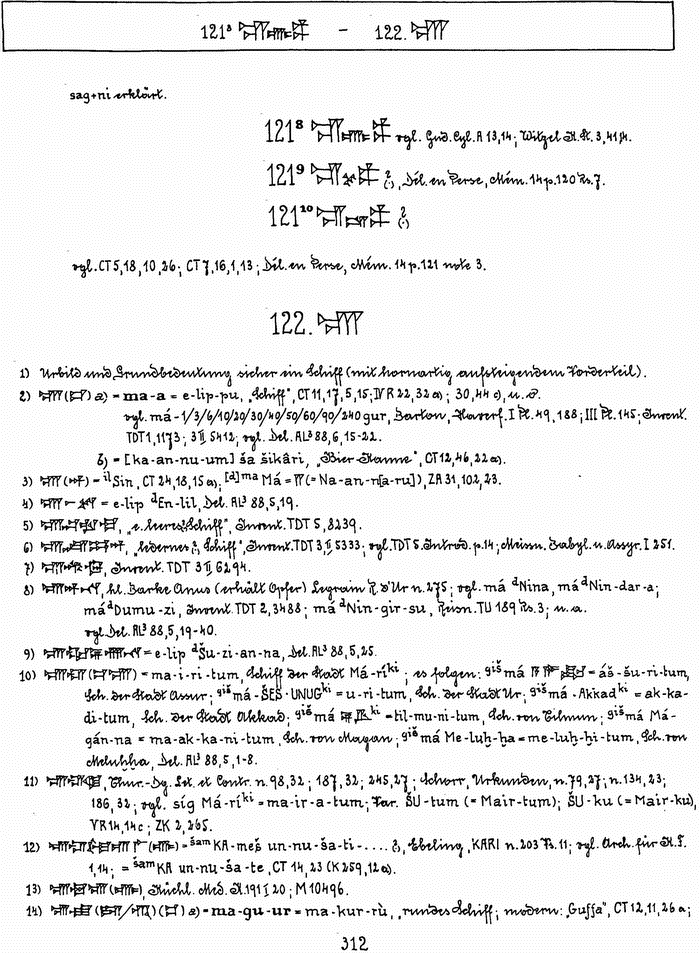 121⁸ – 122.
sag+ni erklärt.
121⁸ vgl. Gud. Cyl. A 13,14; Witzel K. St. 3,41,14.
121⁹ ?, Dél. en Perse, Mém. 14 p. 120 Rs. 7.
121¹⁰ ?
vgl. CT 5,18,10,26; CT 7,16,1,13; Dél. en Perse, Mém. 14 p. 121 note 3.
122.
1) Urbild und Grundbedeutung sicher ein Schiff (mit hornartig aufsteigendem Vorderteil).
2) a) = ma-a = e-lip-pu, „Schiff", CT 11,17,5,15; IV R 22,32a); 30,44c), u. ö.
vgl. má-1/3/6/10/20/30/40/50/60/90/240 gur, Barton, Haverf. I Pl. 49,188; III Pl. 145; Invent.
TDT 1,1173; 3 II 5412; vgl. Del. AL³ 88,6,15-22.
b) = [ka-an-nu-um] ša šikâri, „Bier-Kanne", CT 12,46,22a).
3) = ⁱˡSin, CT 24,18,15a); [d]ma Má = (= Na-an-n[a-ru]), ZA 31,102,23.
4) = e-lip ᵈEn-lil, Del. AL³ 88,5,19.
5) „e. leeres Schiff", Invent. TDT 5,8239.
6) „ledernes ? Schiff", Invent. TDT 3 II 5333; vgl. TDT 5. Introd. p. 14; Meissn. Babyl. u. Assyr. I 251.
7) Invent. TDT 3 II 6294.
8) hl. Barke Anus (erhält Opfer) Legrain R. d'Ur n. 275; vgl. má ᵈNina, má ᵈNin-dar-a;
má ᵈDumu-zi, Invent. TDT 2,3488; má ᵈNin-gir-su, Reisn. TU 189 Rs. 3; u. a.
vgl. Del. AL³ 88,5,19-40.
9) = e-lip ᵈŠu-zi-an-na, Del. AL³ 88,5,25.
10) = ma-i-ri-tum, Schiff der Stadt Má-ríᵏⁱ; es folgen: ᵍⁱˢmá = áš-šu-ri-tum,
Sch. der Stadt Assur; ᵍⁱˢmá-ŠEŠ·UNUGᵏⁱ = u-ri-tum, Sch. der Stadt Ur; ᵍⁱˢmá-Akkadᵏⁱ = ak-ka-
di-tum, Sch. der Stadt Akkad; ᵍⁱˢmá = til-mu-ni-tum, Sch. von Tilmun; ᵍⁱˢmá Má-
gán-na = ma-ak-ka-ni-tum, Sch. von Magan; ᵍⁱˢmá Me-luḫ-ḫa = me-luḫ-ḫi-tum, Sch. von
Meluḫḫa, Del. AL³ 88,5,1-8.
11) Thur.-Dg. Let. et Contr. n. 98,32; 187,32; 245,27; Schorr, Urkunden, n. 79,27; n. 134,23;
186,32; vgl. síg Má-ríᵏⁱ = ma-ir-a-tum; Var. ŠU-tum (= Mair-tum); ŠU-ku (= Mair-ku),
V R 14,14c; ZK 2,265.
12) = šamKA-meš un-nu-ša-ti-.... ?, Ebeling, KARI n. 203 Rs. 11; vgl. Arch. für K. F.
1,14; = šamKA un-nu-ša-te, CT 14,23 (K 259,12a).
13) Küchl. Med. K. 191 I 20; M 10496.
14) a) = ma-gu-ur = ma-kur-rù, „rundes Schiff; modern: „Guffa", CT 12,11,26a;
312